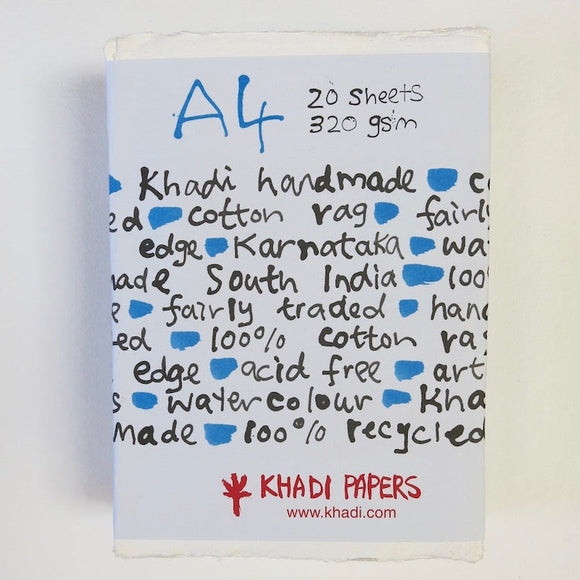 A4
20 sheets
320 gsm
Khadi handmade c
ed cotton rag fairly
edge Karnataka wa
made South India 100
e fairly traded hand
ed 100% cotton rag
edge acid free art
s watercolour Kha
made 100% recycled
KHADI PAPERS
www.khadi.com